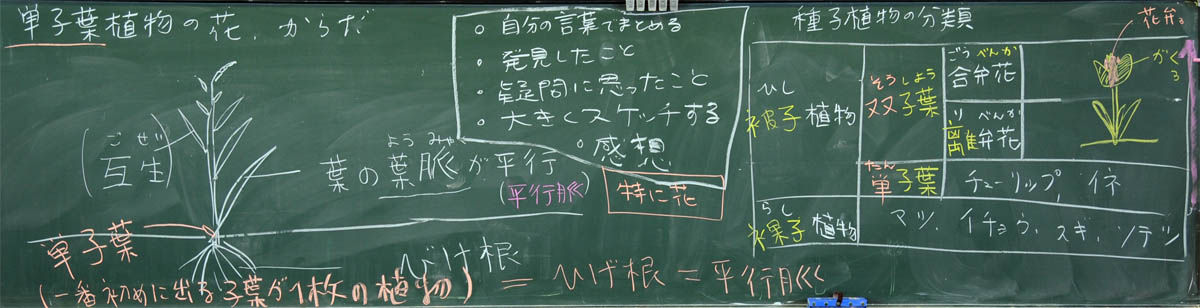 単子葉植物の花、からだ
(互生)
ごせい
葉の葉脈が平行
ようみゃく
(平行脈)
単子葉
(一番初めに出る子葉が1枚の植物)
ひげ根
= ひげ根 = 平行脈
。自分の言葉でまとめる
・発見したこと
・疑問に思ったこと
・大きくスケッチする
。感想
特に花
種子植物の分類
ひし
被子植物
そうしよう
双子葉
ごうべんか
合弁花
りべんか
離弁花
たん
単子葉
チューリップ、イネ
らし
裸子植物
マツ、イチョウ、スギ、ソテツ
花弁3
がく3